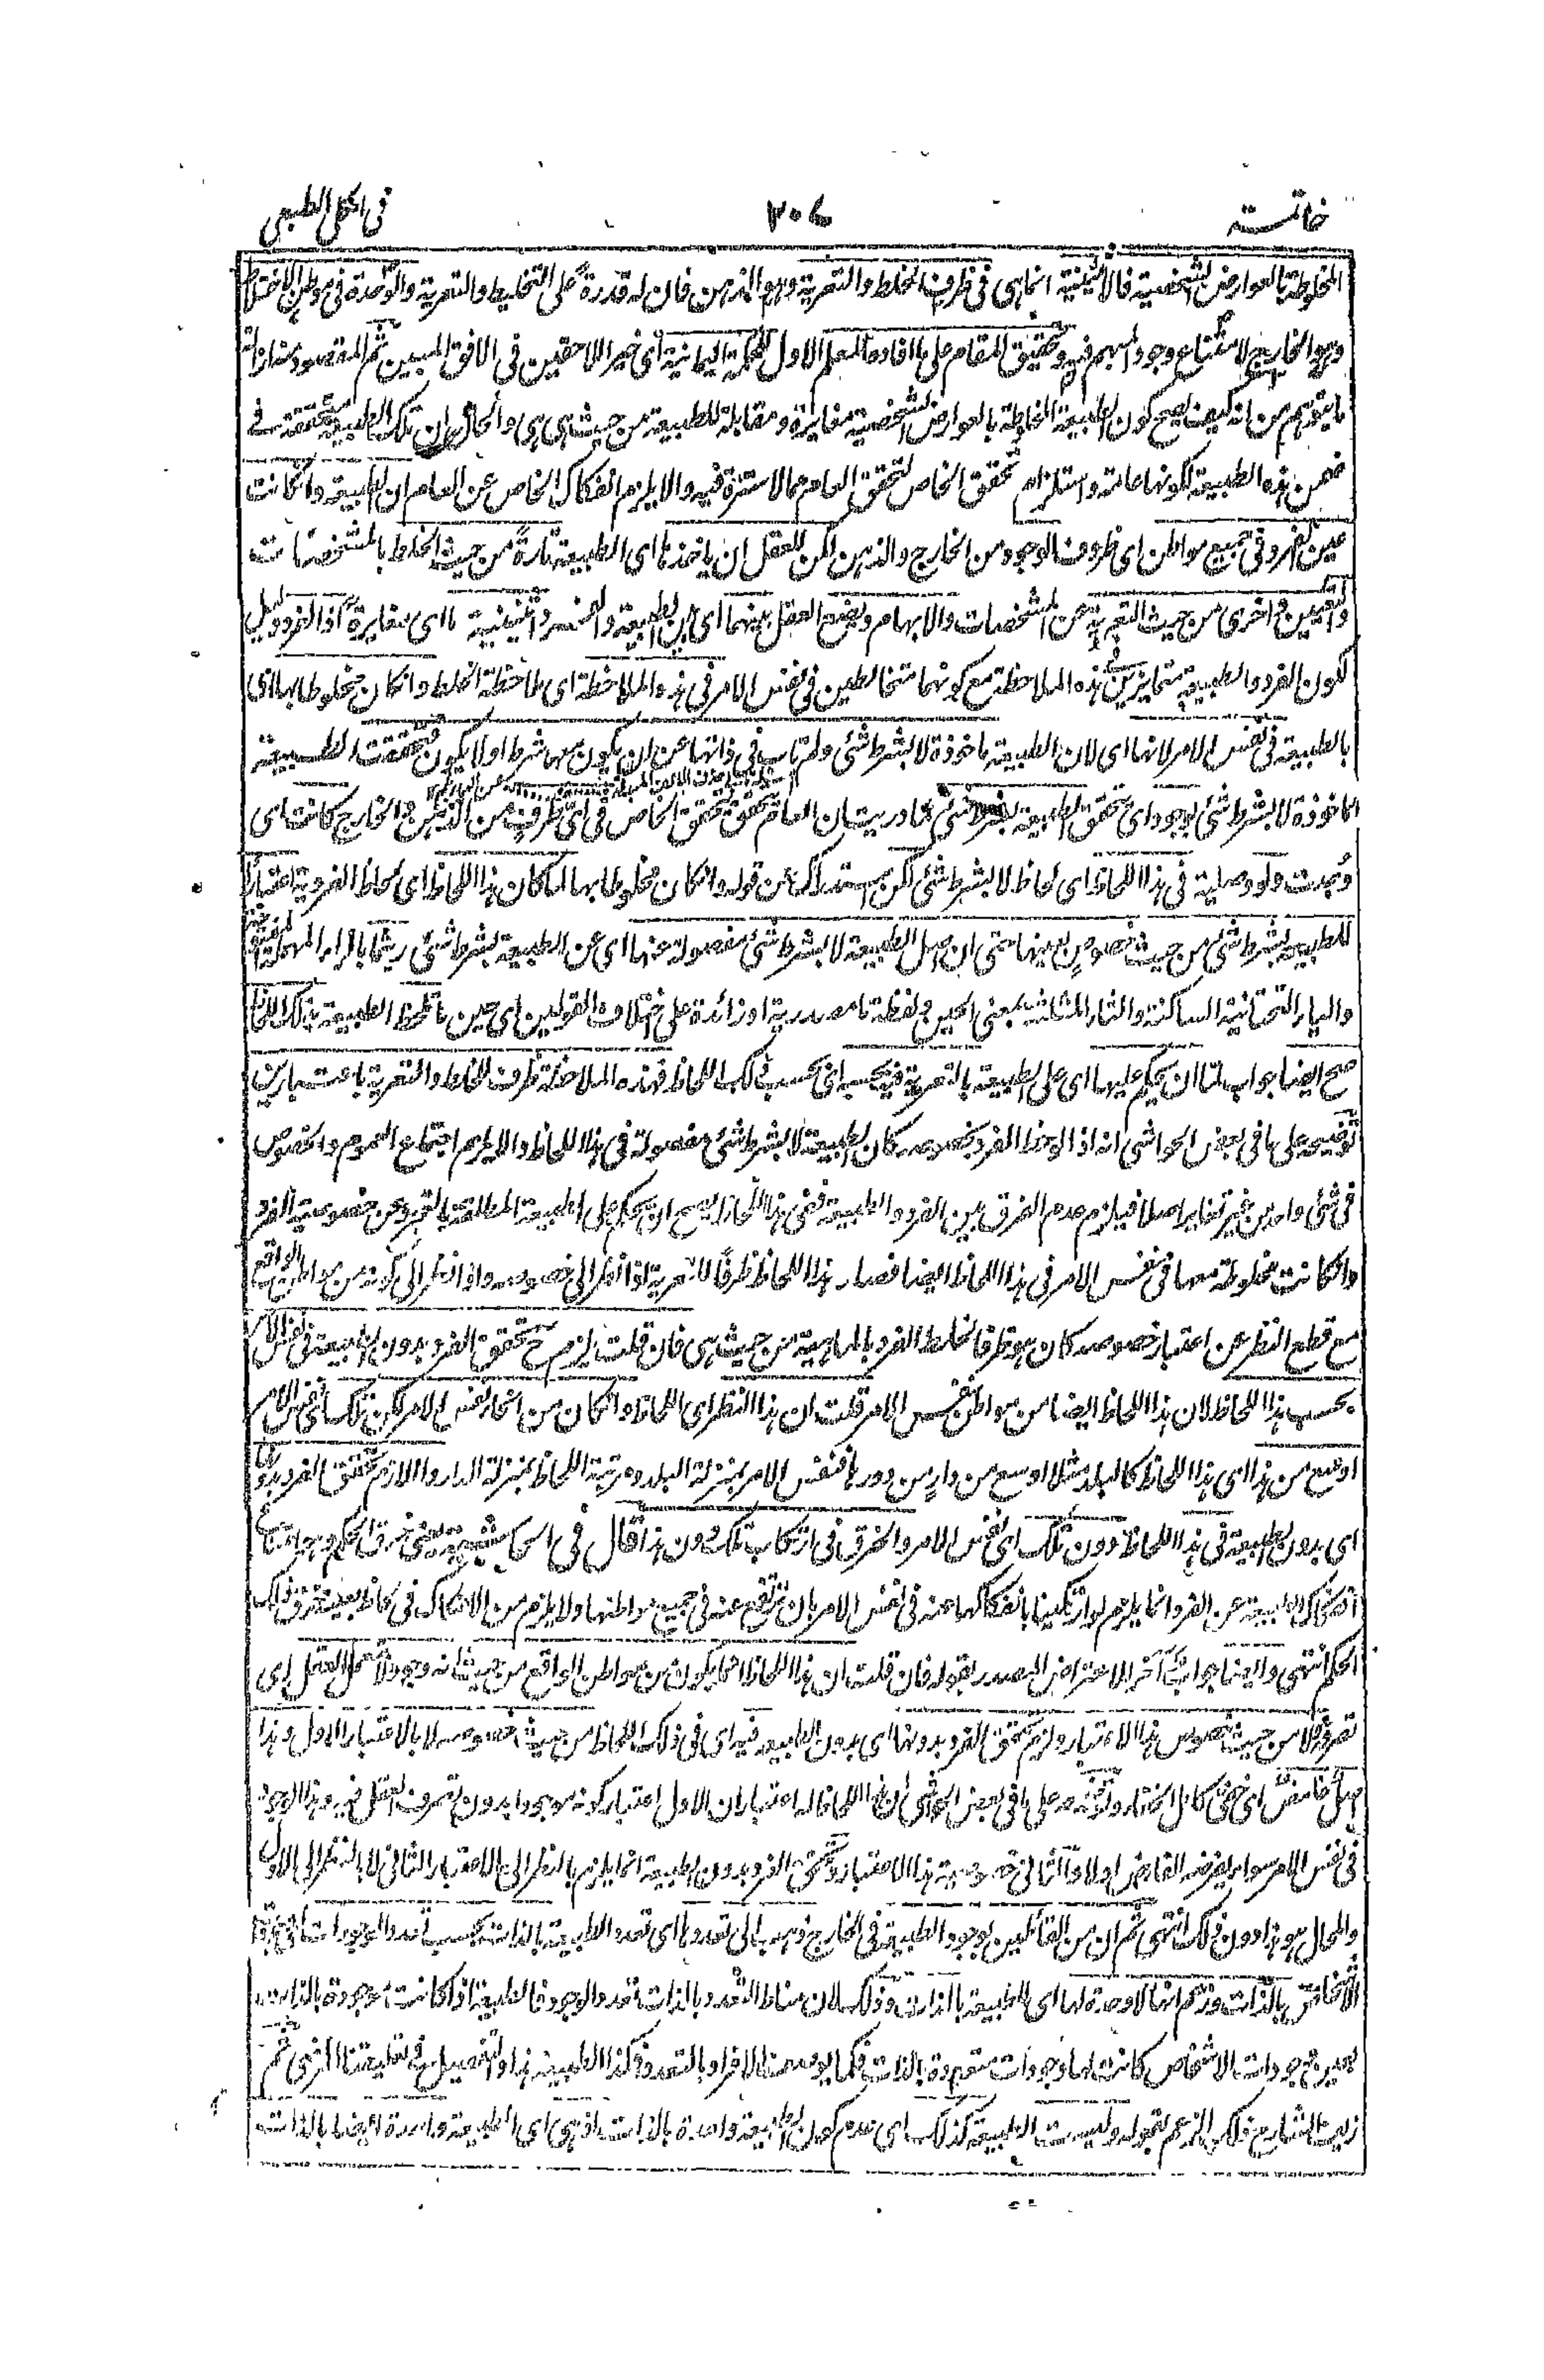 خاتمة ٢٠٦ فى الكلى الطبيعى
المخلوطة بالعوارض الشخصية فالاثنينية انما هى فى ظرف الخلط والتعرية وهو الذهن فان له قدرة على التخليط والتعرية والوحدة فى موطن الاختلاط
وهو الخارج لامتناع وجود المبهم فيه وتحقيق المقام على ما افاده المعلم الاول للحكمة اليمانية اى خير اللاحقين فى الافق المبين ثم المقصود منه ازالة
ما يتوهم من انه كيف يصح كون الطبيعة المخلوطة بالعوارض الشخصية مغايرة ومقابلة للطبيعة من حيث هى هى والحال ان تلك الطبيعة متحققة فى
ضمن هذه الطبيعة لكونها عامة واستلزام تحقق الخاص لتحقق العام مما لا سترة فيه والا يلزم انفكاك الخاص عن العام ان الطبيعة وان كانت
عين الفرد فى جميع مواطن اى ظروف الوجود من الخارج والذهن لكن للعقل ان ياخذها اى الطبيعة تارة من حيث الخلط بالمشخصات
والتعيين واخرى من حيث التعرية عن المشخصات والابهام ويضع العقل بينهما اى بين الطبيعة والفرد اثنينية ما اى مغايرة اذ الفرد دليل
لكون الفرد والطبيعة متمايزين هذه الملاحظة مع كونهما متخالطين فى نفس الامر فى هذه الملاحظة اى ملاحظة الخلط وان كان مخلوطا بها اى
بالطبيعة فى نفس الامر لانها اى لان الطبيعة ماخوذة لا بشرط شئ ولم تاب فى ذاتها عن ان يكون معها شرط او لا يكون فتحققت الطبيعة
الماخوذة لا بشرط شئ بوجود اى تحقق الطبيعة بشرط شئ لما دريت ان العام تحقق بتحقق الخاص فى اى ظرف من الذهن والخارج كانت اى
وجدت ولو وصلية فى هذا اللحاظ اى لحاظ لا بشرط شئ لكن استدراك عن قوله وان كان مخلوطا بها لما كان هذا اللحاظ اى لحاظ الفردية اعتبارا
للطبيعة بشرط شئ من حيث خصوص بعينها حتى ان جعل الطبيعة لا بشرط شئ مفصولة عنها اى عن الطبيعة بشرط شئ ريثما بالراء المهملة المفتوحة
والياء التحتانية الساكنة والثاء المثلثة بمعنى الحين ولفظة ما مصدرية او زائدة على اختلاف القولين اى حين ما تلحظ الطبيعة بذلك اللحاظ
صح ايضا جواب لما ان يحكم عليها اى على الطبيعة بالتعرية فيه بحسبه اى بحسب ذلك اللحاظ فهذه الملاحظة ظرف للخلط والتعرية باعتبارين
توضيحه على ما فى بعض الحواشى انه اذا لوحظ الفرد بخصوصه كان الطبيعة لا بشرط شئ مفصولة فى هذا اللحاظ والا يلزم اجتماع العموم والخصوص
فى شئ واحد من غير تغاير اصلا فيلزم عدم الفرق بين الفرد والطبيعة ففى هذا اللحاظ يصح ان يحكم على الطبيعة المطلقة بالتجرد عن خصوصية الفرد
وان كانت مخلوطة معها فى نفس الامر فى هذا اللحاظ ايضا فصار هذا اللحاظ ظرفا للتعرية اذا نظر الى خصوصه واذا نظر الى كونه من مواطن الواقع
مع قطع النظر عن اعتبار خصوصه كان هو ظرفا لخلط الفرد بالماهية من حيث هى فان قلت يلزم ح تحقق الفرد بدون الطبيعة فى نفس الامر
بحسب هذا اللحاظ لان هذا اللحاظ ايضا من مواطن نفس الامر قلت ان هذا النظر اى اللحاظ وان كان من انحاء نفس الامر لكن تلك اى نفس الامر
اوسع من هذا اى هذا اللحاظ كالبلد مثلا اوسع من دار من دورها فنفس الامر بمنزلة البلد ومرتبة اللحاظ بمنزلة الدار واللازم تحقق الفرد بدونها
اى بدون الطبيعة فى هذا اللحاظ دون تلك اى نفس الامر والخرق فى ارتكاب تلك دون هذا قال فى الحاشية يعنى خرق الحكم وهو امتناع
انفكاك الطبيعة عن الفرد انما يلزم لو ارتكبنا بانفكاكها عنه فى نفس الامر بان ترتفع عنه فى جميع مواطنها ولا يلزم من الانفكاك فى لحاظ بعينه خرق ذلك
الحكم انتهى وايضا جواب آخر للاعتراض المصدر بقوله فان قلت ان هذا اللحاظ انما يكون من مواطن الواقع من حيث انه وجود لا تعمل العقل اى
تصرفه لا من حيث خصوص هذا الاعتبار ولزم تحقق الفرد بدونها اى بدون الطبيعة فيه اى فى ذلك اللحاظ من حيث خصوصه لا بالاعتبار الاول وهذا
غامض اى خفى وتوضيحه على ما فى بعض الحواشى ان هذا اللحاظ له اعتباران الاول اعتبار كونه موجودا بدون تصرف العقل فيه وهذا الوجود
فى نفس الامر سواء يفرضه الفارض او لا والثانى خصوصية هذا الاعتبار وتحقق الفرد بدون الطبيعة انما يلزم بالنظر الى الاعتبار الثانى لا بالنظر الى الاول
والمحال هو هذا دون ذلك انتهى ثم ان من القائلين بوجود الطبيعة فى الخارج ذهب الى تعددها اى تعدد الطبيعة بالذات بحسب تعدد الوجودات
الاشخاص بالذات وزعم انها لا وحدة لها اى للطبيعة بالذات وذلك لان مناط التعدد بالذات تعدد الوجود فالطبيعة اذا كانت موجودة بالذات
بعين وجودات الاشخاص كانت لها وجودات متعددة بالذات فكما يوصف الافراد بالتعدد فكذا الطبيعة هذا والتفصيل فى تعليقنا المرضى ثم
زيف الشارح ذلك الزعم بقوله وليست الطبيعة كذلك اى عدم كون الطبيعة واحدة بالذات اذ هى اى الطبيعة واحدة ايضا بالذات